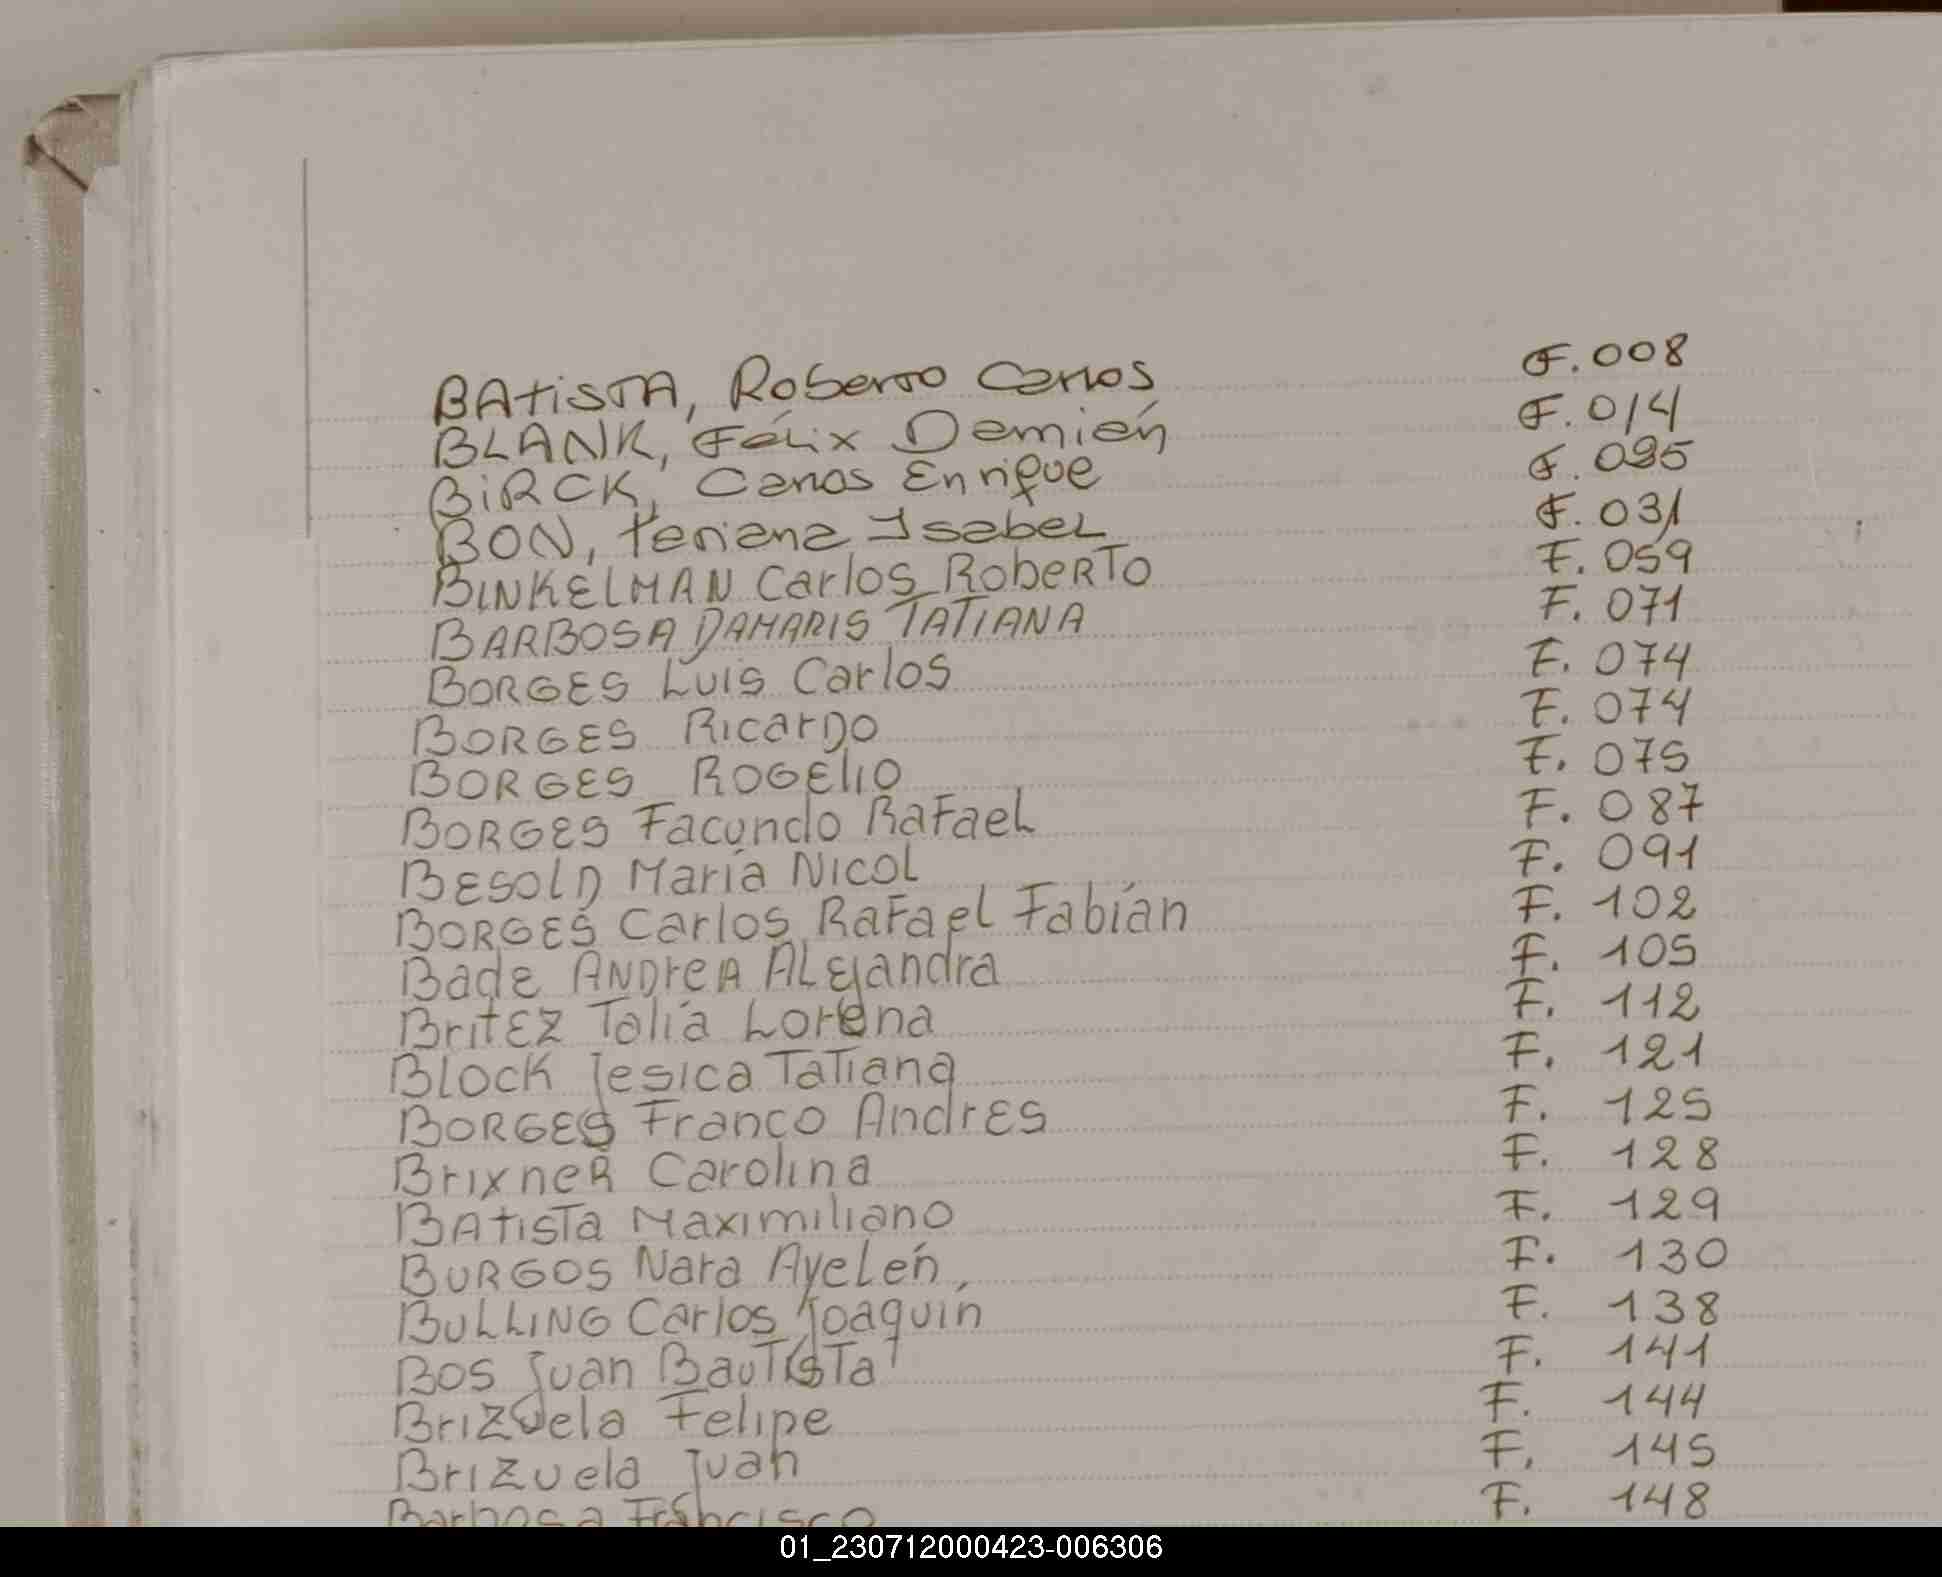 BATISTA, Roberto Carlos F. 008
BLANK, Félix Demién F. 014
BIRCK, Carlos Enrique F. 025
BON, Mariana Isabel F. 031
BINKELMAN Carlos Roberto F. 059
BARBOSA DAMARIS TATIANA F. 071
BORGES Luis Carlos F. 074
BORGES Ricardo F. 074
BORGES ROGELIO F. 075
BORGES Facundo Rafael F. 087
BESOLD María Nicol F. 091
BORGES Carlos Rafael Fabián F. 102
Bade ANDREA ALEjandra F. 105
Britez Talía Lorena F. 112
Block Jesica Tatiana F. 121
BORGES Franco Andres F. 125
Brixner Carolina F. 128
BAtista Maximiliano F. 129
BURGOS Nara Ayelén, F. 130
BULLING Carlos Joaquín F. 138
BOS Juan Bautista F. 141
Brizuela Felipe F. 144
Brizuela Juan F. 145
Barbosa Francisco F. 148
01_230712000423-006306